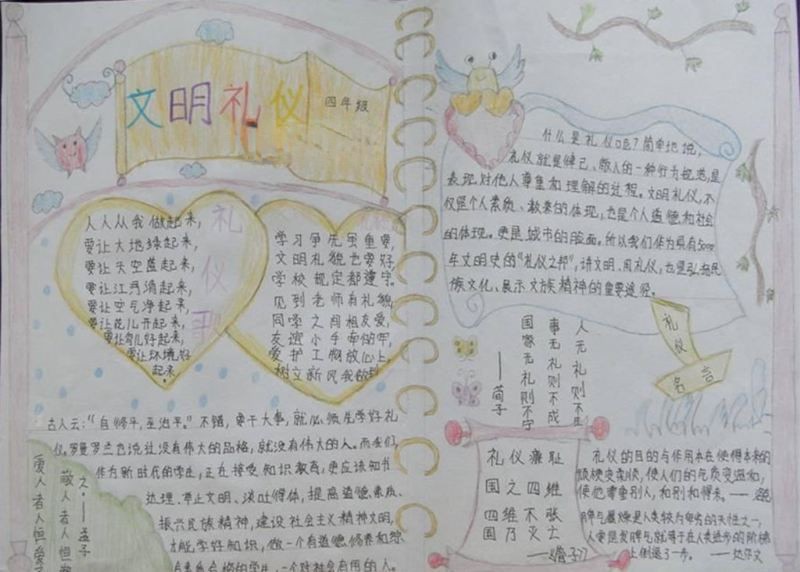 文明礼仪
四年级
人人从我做起来,
要让大地绿起来,
要让天空蓝起来,
要让江河清起来,
要让空气净起来,
要让花儿开起来,
要让鸟儿好起来,
要让环境好
起来,
礼仪歌
学习争先虽重要,
文明礼貌也要好,
学校规定都遵守,
见到老师有礼貌
同学之间相友爱,
友谊小手牵的牢,
爱护工物放心上,
树立新风我做到
古人云:“自修平,至治平。”不错,要干大事,就必须先学好礼
仪。罗曼罗兰也说过没有伟大的品格,就没有伟大的人。而我们
作为新时代的学生,正在接受知识教育,更应该知书
达理,举止文明、谈吐得体,提高道德素质、
振兴民族精神,建设社会主义精神文明,
才能学好知识,做一个有道德修养和
的学生,一个对社会有用的人。
爱人者人恒爱
敬人者人恒
之。——孟子
什么是礼仪呢?简单地说,
礼仪就是律己、敬人的一种行为规范,是
表现对他人尊重和理解的过程。文明礼仪,不
仅是个人素质、教养的体现,也是个人道德和社会
的体现。更是城市的脸面。所以我们作为具有5000
年文明史的“礼仪之邦”,讲文明、用礼仪,也是弘扬民
族文化、展示文族精神的重要途径。
礼仪
名言
人无礼则不生
事无礼则不成
国家无礼则不守
——荀子
礼仪廉耻
国之四维
四维不张
国乃灭亡
——《管子》
礼仪的目的与作用本在使得本来的
顽梗变柔顺,使人们的气质变温和,
使他尊重别人,和别和得来。——
脾气暴燥是人类较为卑劣的天性之一,
人要是发脾气就等于在人类进步的阶梯
上倒退了一步。——达尔文